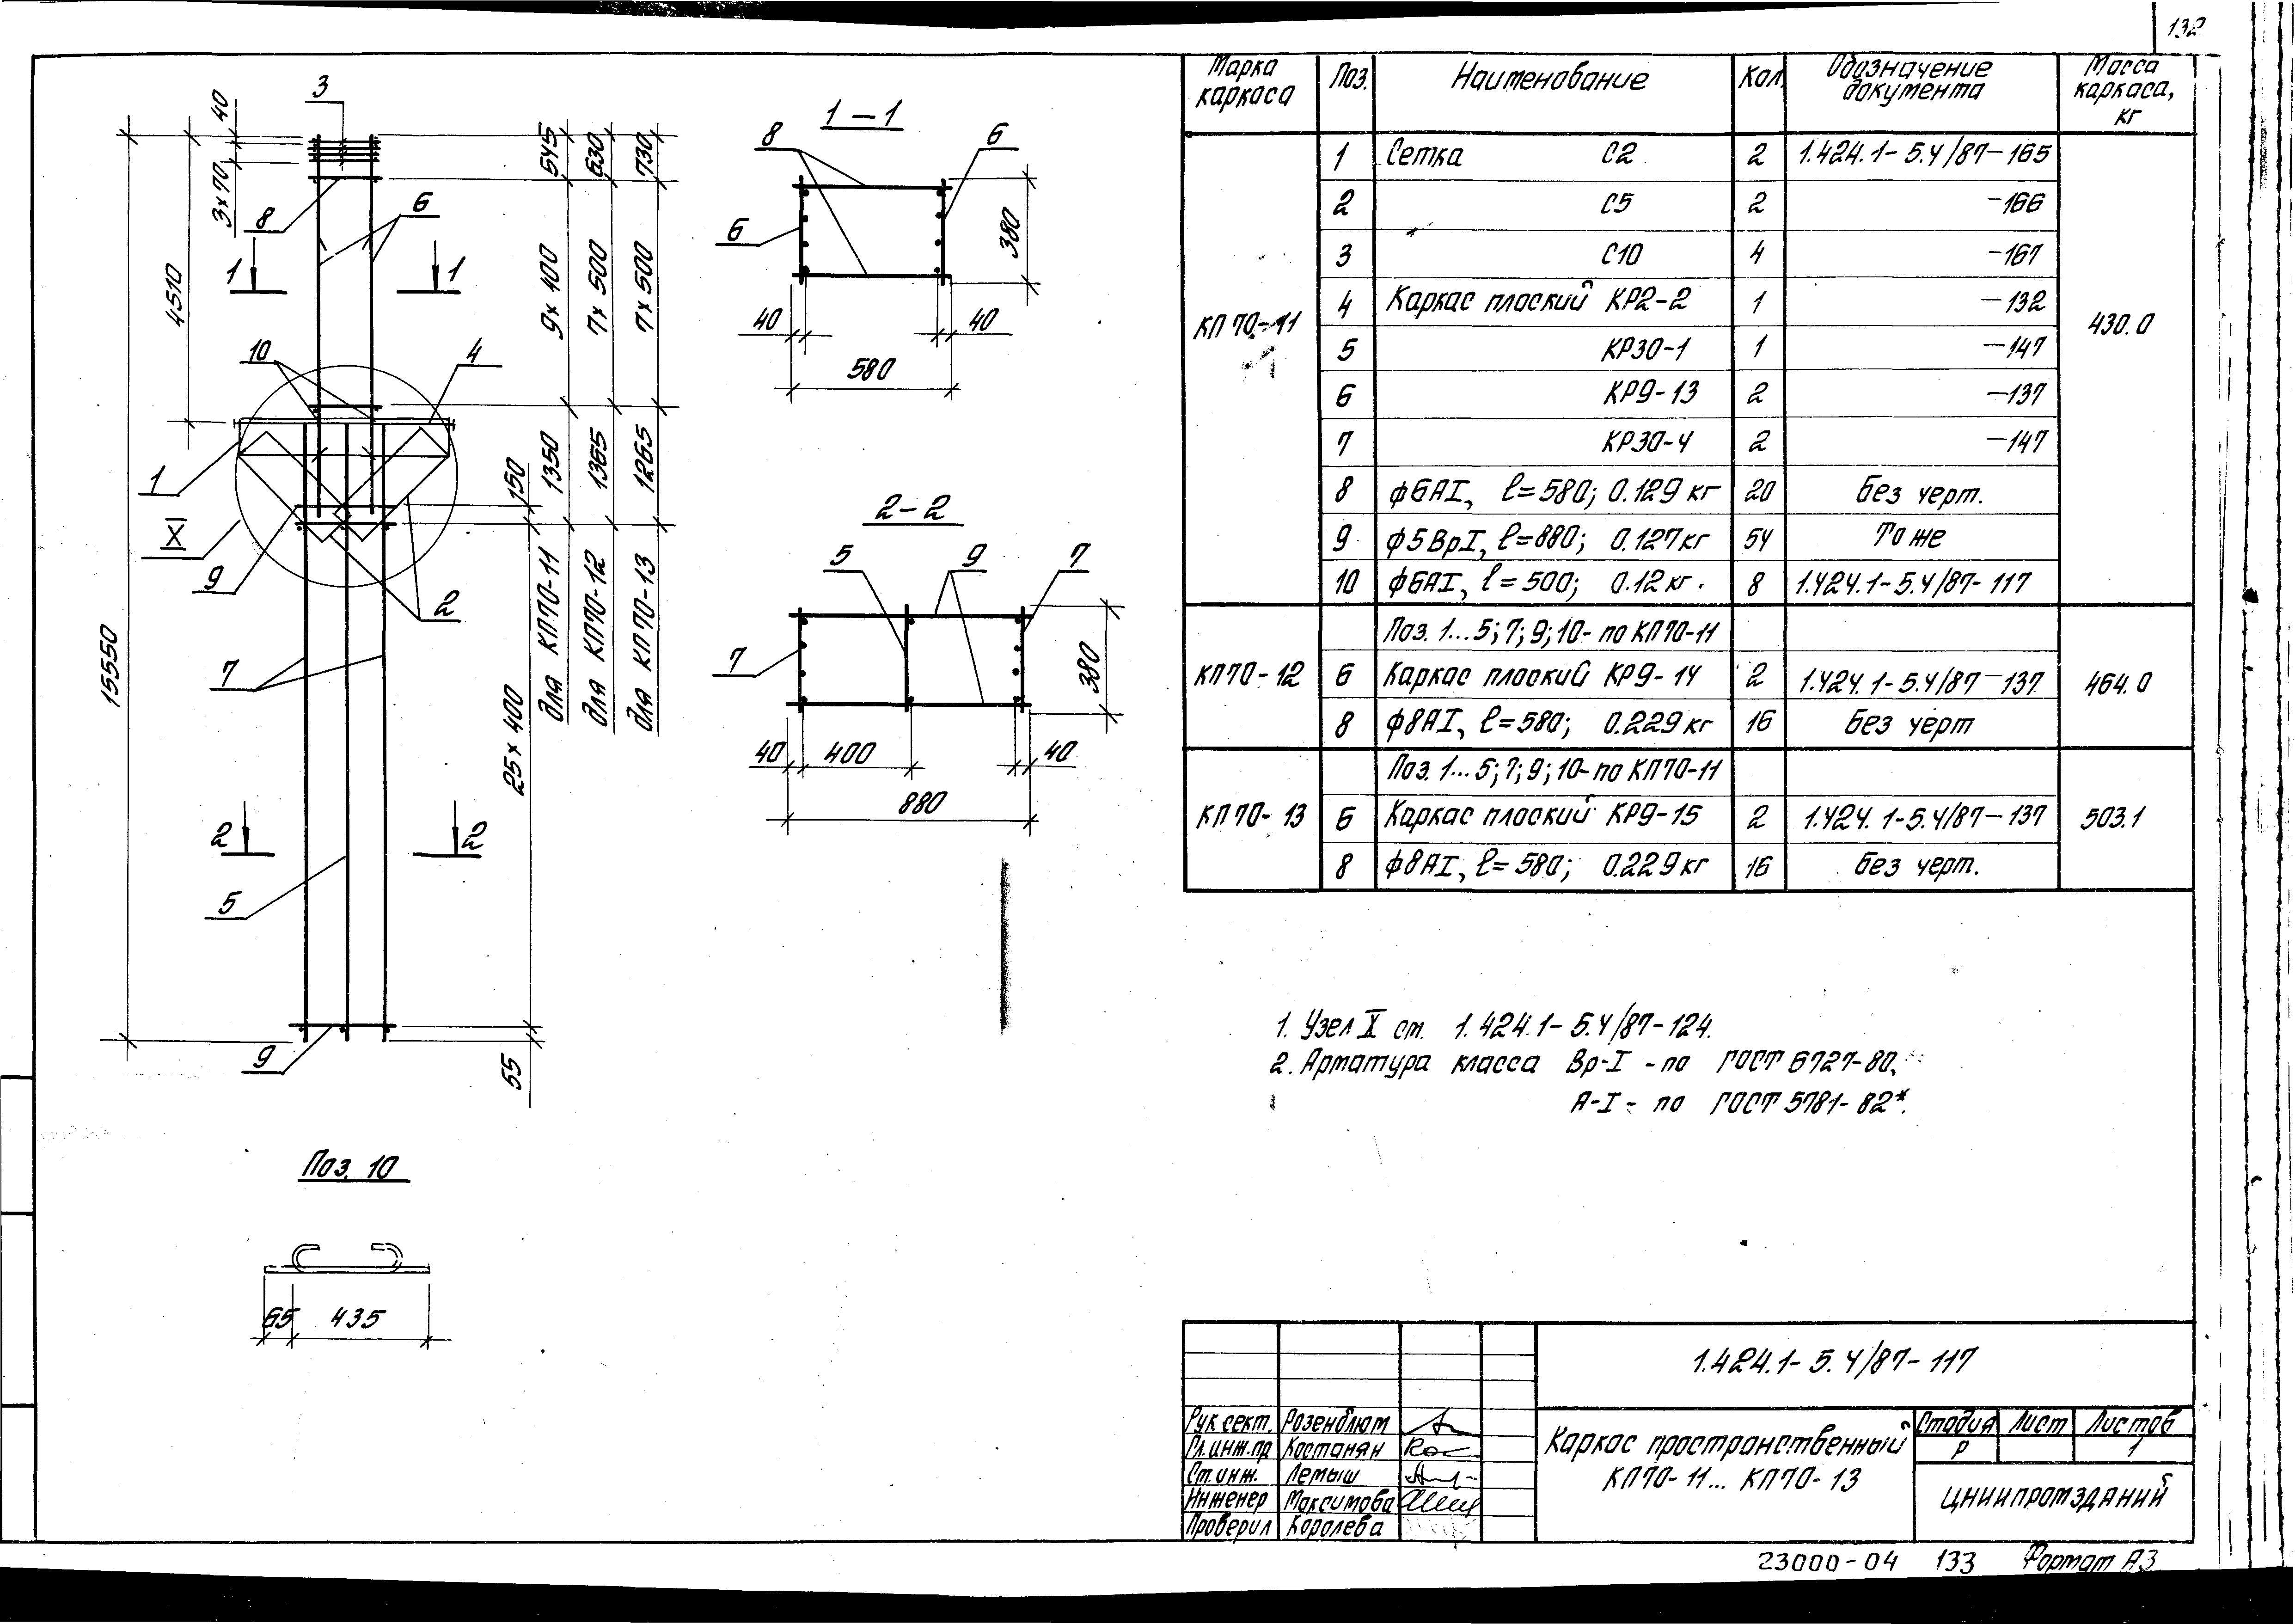 132
3
40
3×70
8
6
1 1
4510
10
4
1
X
9
2
7
15550
2 2
5
9
545
9×400
1350
для КП70-11
630
7×500
1365
для КП70-12
730
7×500
1265
для КП70-13
150
25×400
55
1-1
8
6
6
380
40
40
580
2-2
5
9
7
7
380
40
400
40
880
Поз. 10
65
435
Марка каркаса | Поз. | Наименование | Кол. | Обозначение документа | Масса каркаса, кг
КП70-11 | 430.0
1 Сетка С2 2 1.424.1-5.4/87-165
2 С5 2 -166
3 С10 4 -167
4 Каркас плоский КР2-2 1 -132
5 КР30-1 1 -147
6 КР9-13 2 -137
7 КР30-4 2 -147
8 ф6АI, ℓ=580; 0.129 кг 20 Без черт.
9 ф5ВрI, ℓ=880; 0.127кг 54 То же
10 ф6АI, ℓ=500; 0.12кг. 8 1.424.1-5.4/87-117
КП70-12 | 464.0
Поз. 1...5; 7; 9; 10- по КП70-11
6 Каркас плоский КР9-14 2 1.424.1-5.4/87-137
8 ф8АI, ℓ=580; 0.229кг 16 Без черт
КП70-13 | 503.1
Поз. 1...5; 7; 9; 10- по КП70-11
6 Каркас плоский КР9-15 2 1.424.1-5.4/87-137
8 ф8АI, ℓ=580; 0.229кг 16 Без черт.
1. Узел X см. 1.424.1-5.4/87-124.
2. Арматура класса Вр-I - по ГОСТ 6727-80,
А-I - по ГОСТ 5781-82*.
1.424.1-5.4/87-117
Рук. сект. Розенблюм
Гл.инж.пр Костанян
Ст.инж. Лемыш
Инженер Максимова
Проверил Королева
Каркас пространственный
КП70-11... КП70-13
Стадия Лист Листов
Р 1
ЦНИИПРОМЗДАНИЙ
23000-04 133 Формат А3